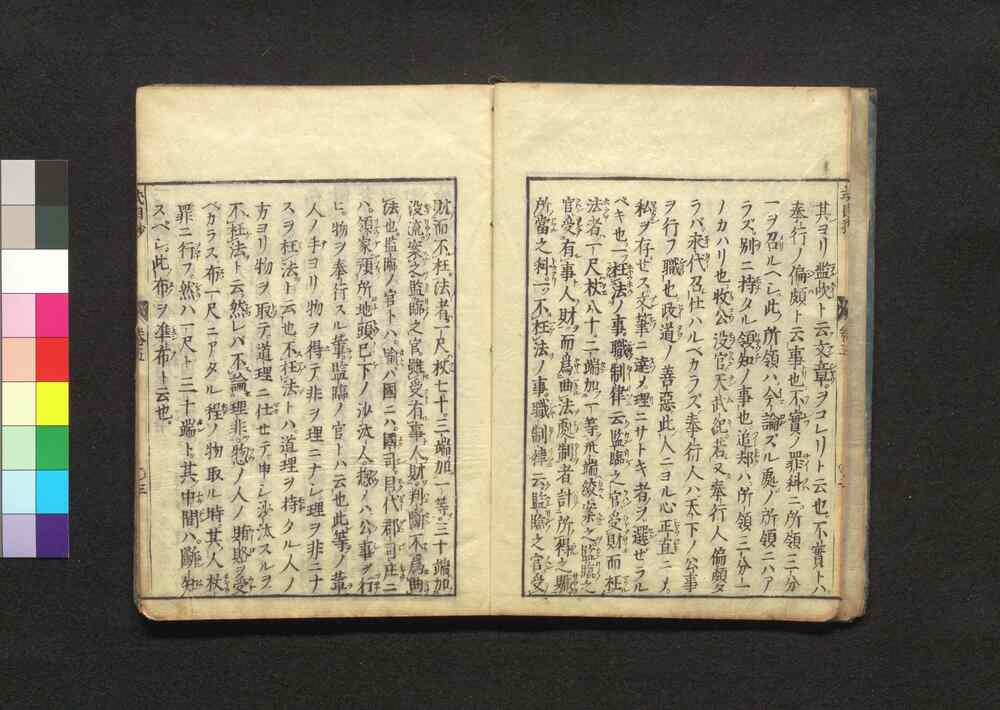 其ヨリ監吹ト云文章ヲコレリト云也不實トハ
奉行ノ偏頗ト云事也不實ノ罪科ニ所領三分
一ヲ召ルヘシ此所領ハ今論ズル處ノ所領ニハア
ラズ別ニ持タル領知ノ事也追却ハ所領三分一
ノカハリ也收公没官天武紀若又奉行人偏頗タ
ラバ永代召仕ハルベカラズ奉行人ハ天下ノ公事
ヲ行フ職也政道ノ善惡此人ニヨル心正直ニメ
私ヲ存セス文筆ニ達メ理ニサトキ者ヲ選ゼラル
ベキ也一枉法ノ事職制律云監臨之官受財而枉
法者一尺杖八十二端加一等卅端絞案之監臨之
官受有事人財而爲曲法處制者計所得之贓
所當之科一不枉法ノ事職制律云監臨之官受
財而不枉法者一尺杖七十三端加一等三十端加
役流案之監臨之官雖受有事人財判斷不爲曲
法也監臨ノ官トハ論バ國ニハ國司目代郡司庄ニ
ハ領家預所地頭已下ノ沙汰人惣ノハ公事ヲ行
ヒ物ヲ奉行スル輩監臨ノ官トハ云也此等ノ輩
人ノ手ヨリ物ヲ得テ非ヲ理ニナシ理ヲ非ニナ
スヲ枉法ト云也不枉法トハ道理ヲ持タル人ノ
方ヨリ物ヲ取テ道理ニ仕セテ申シ沙汰スルヲ
不枉法ト云然レバ不論理非惣ノ人ノ賄賂ヲ受
ベカラス布一尺ニアタル程ノ物取ル時其人杖
罪ニ行フ然ハ一尺ト三十端ト其中間ハ斷知
スベシ此布ヲ準布ト云也